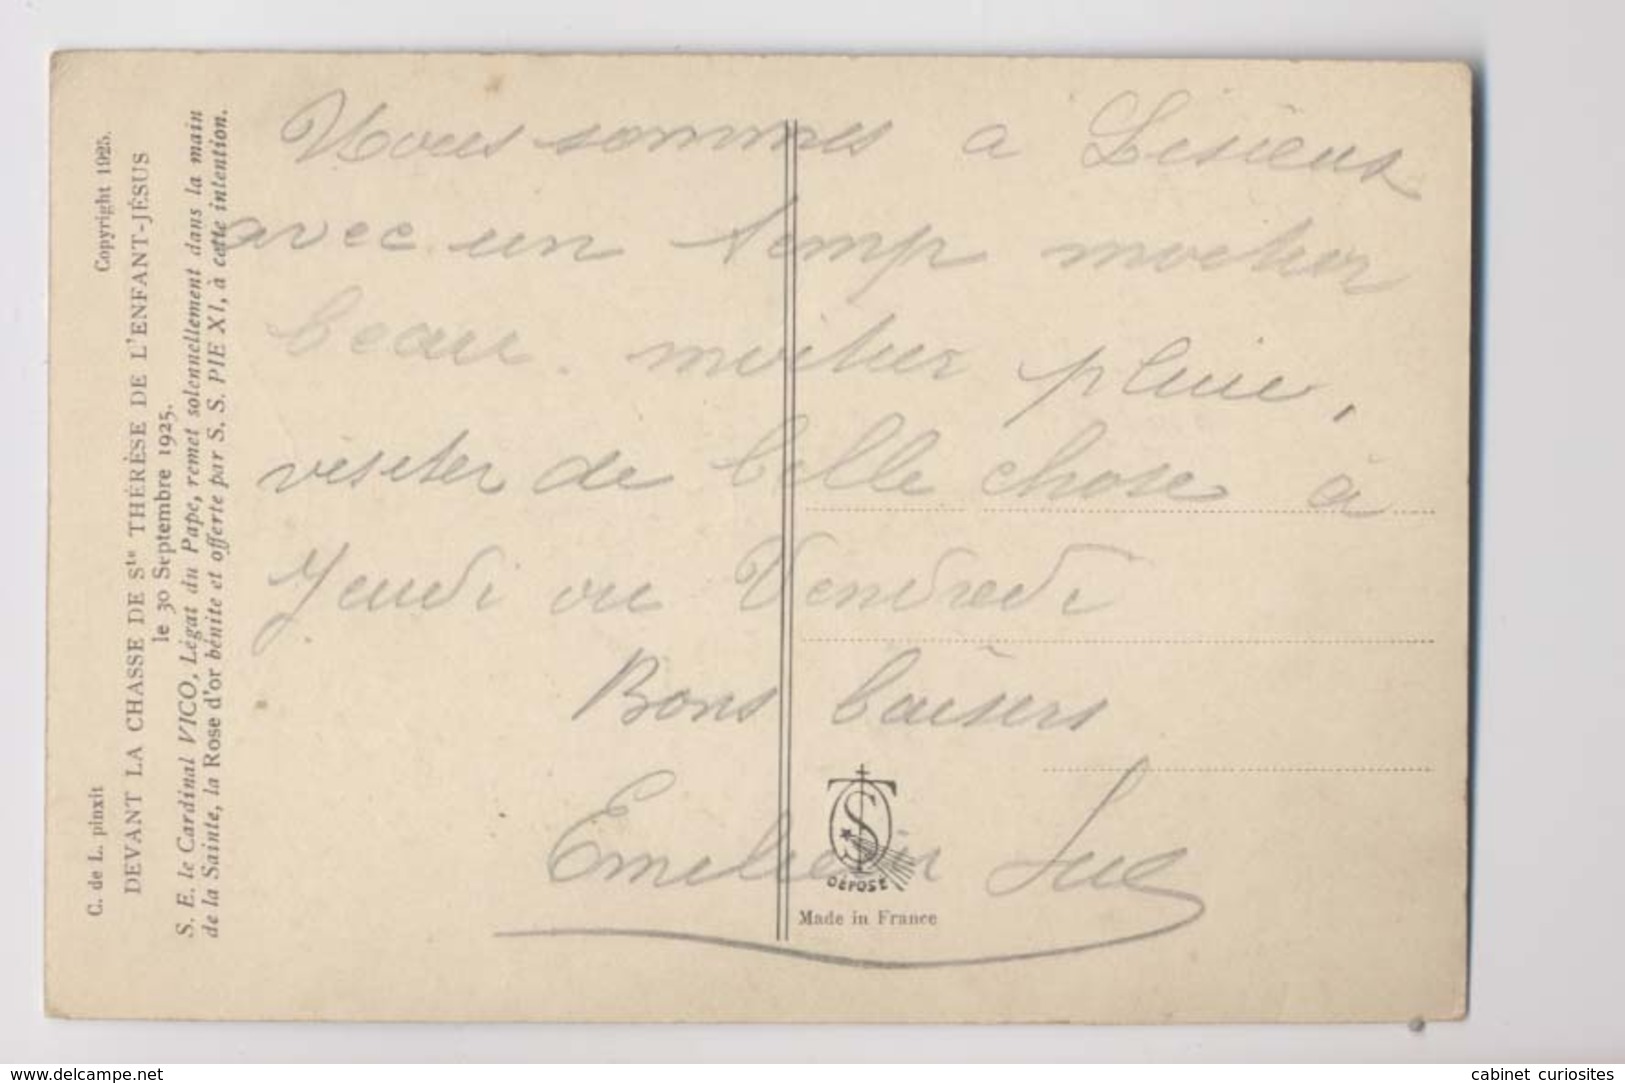 C. de L. pinxit Copyright 1925.
DEVANT LA CHASSE DE Ste THÉRÈSE DE L'ENFANT-JÉSUS
le 30 Septembre 1925.
S. E. le Cardinal VICO, Légat du Pape, remet solennellement dans la main
de la Sainte, la Rose d'or bénite et offerte par S. S. PIE XI, à cette intention.
Nous sommes a Lisieux
avec un temp moitier
beau. moitier pluie,
visiter de belle chose à
Jeudi ou Vendredi
Bons baisers
Emelie Luc
DÉPOSÉ
Made in France
www.delcampe.net
cabinet_curiosites